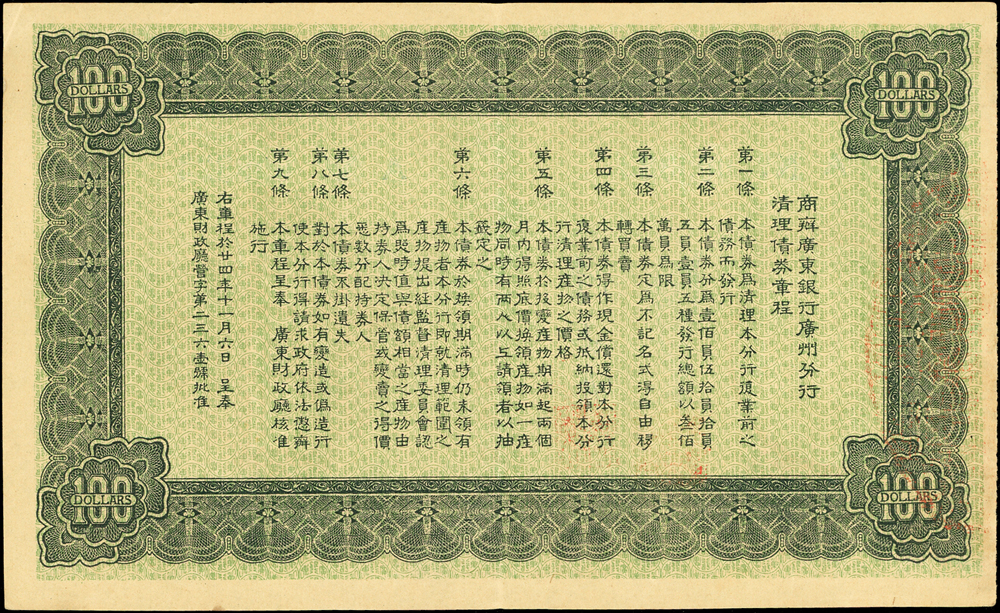 100
DOLLARS
100
DOLLARS
商辦廣東銀行廣州分行
清理債券章程
第一條 本債券爲清理本分行復業前之
債務而發行
第二條 本債券分爲壹佰員伍拾員拾員
五員壹員五種發行總額以叁佰
萬員爲限
第三條 本債券定爲不記名式得自由移
轉買賣
第四條 本債券得作現金償還對本分行
復業前之債務或抵納投領本分
行清理產物之價格
第五條 本債券於後變產物期滿起兩個
月內得照底價換領產物如一產
物同時有兩人以上請領者以抽
籤定之
第六條 本債券於換領期滿時仍未領有
產物者本分行即就清理範圍之
產物提出經監督清理委員會認
爲時值與債額相當之產物由
持券人決定保管或變賣之得價
悉數分配持券人
第七條 本債券不掛遺失
第八條 對於本債券如有變造或僞造行
使本分行得請求政府依法懲辦
第九條 本章程呈奉 廣東財政廳核准
施行
右章程於廿四年十一月六日 呈奉
廣東財政廳營字第二三六壹號批准
100
DOLLARS
100
DOLLARS